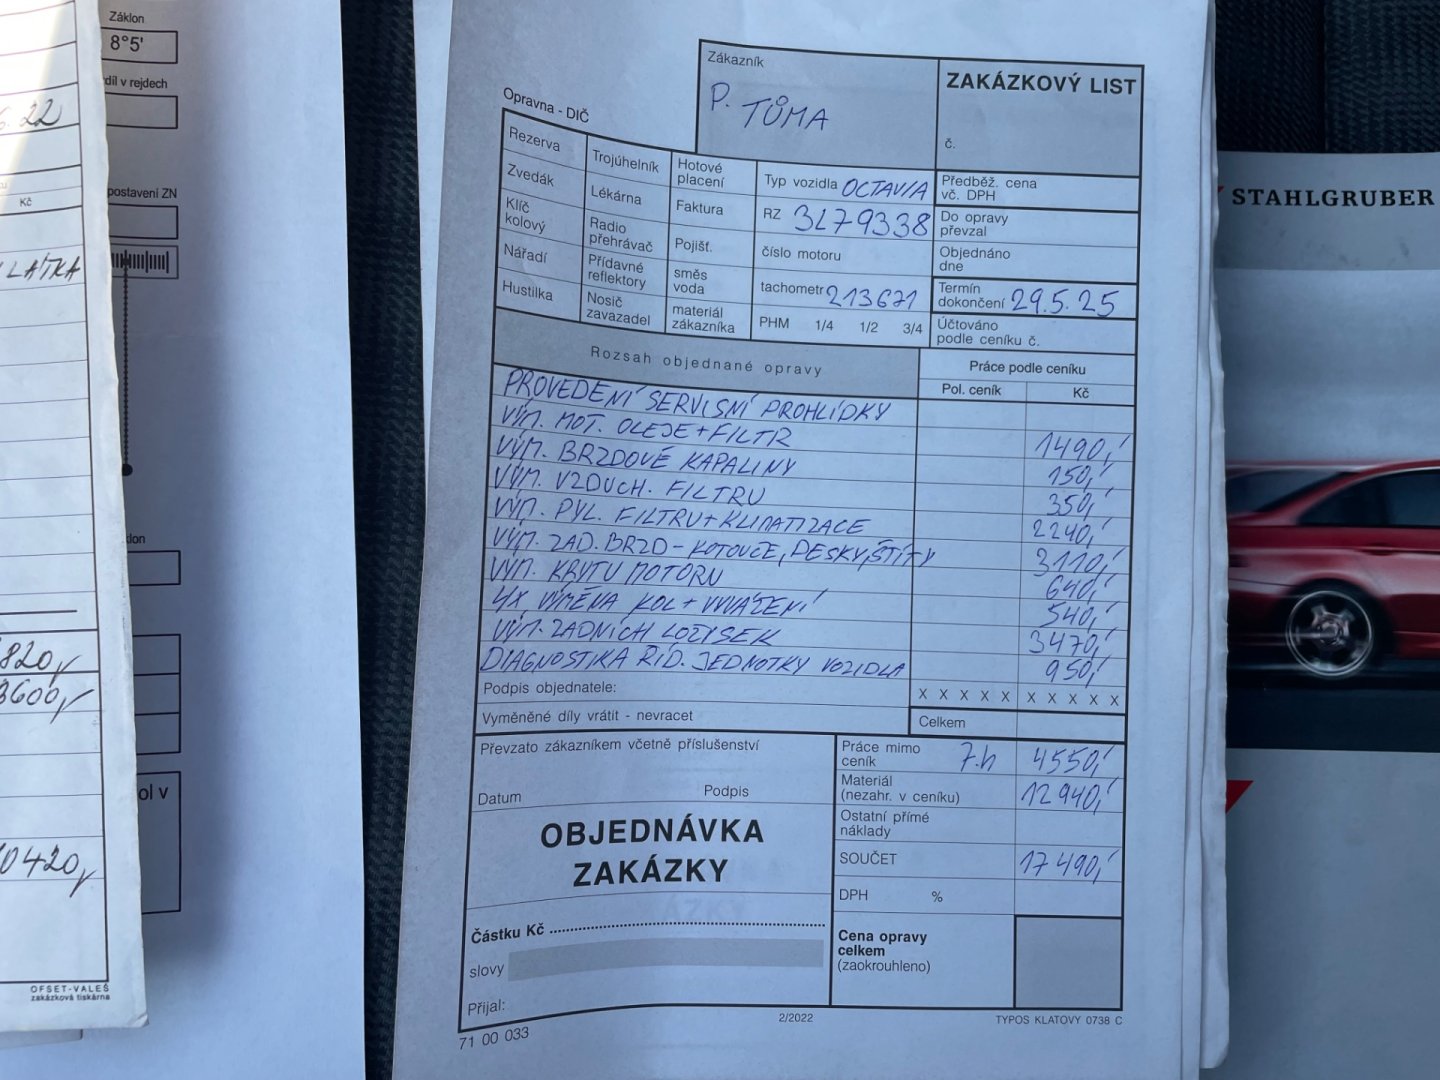 Záklon
8°5'
díl v rejdech
6.22
postavení ZN
Kč
LÁTKA
820,-
3600,-
0420,-
OFSET-VALEŠ
zakázková tiskárna
Zákazník
P. TŮMA
ZAKÁZKOVÝ LIST
č.
Opravna - DIČ
Rezerva
Trojúhelník
Hotové placení
Typ vozidla OCTAVIA
Předběž. cena vč. DPH
Zvedák
Lékárna
Faktura
RZ 3L79338
Do opravy převzal
Klíč kolový
Radio přehrávač
Pojišť.
číslo motoru
Objednáno dne
Nářadí
Přídavné reflektory
směs voda
tachometr 213671
Termín dokončení 29.5.25
Hustilka
Nosič zavazadel
materiál zákazníka
PHM 1/4 1/2 3/4
Účtováno podle ceníku č.
Rozsah objednané opravy
Práce podle ceníku
Pol. ceník
Kč
PROVEDENÍ SERVISNÍ PROHLÍDKY
VÝM. MOT. OLEJE+FILTR 1490,-
VÝM. BRZDOVÉ KAPALINY 150,-
VÝM. VZDUCH. FILTRU 350,-
VÝM. PYL. FILTRU+KLIMATIZACE 2240,-
VÝM. ZAD. BRZD - KOTOUČE, DESKY, ŠTÍTY 3110,-
VÝM. KRYTU MOTORU 640,-
4X VÝMĚNA KOL + VYVÁŽENÍ 540,-
VÝM. ZADNÍCH LOŽISEK 3470,-
DIAGNOSTIKA ŘÍD. JEDNOTKY VOZIDLA 950,-
Podpis objednatele:
X X X X X X X X X X
Vyměněné díly vrátit - nevracet
Celkem
Převzato zákazníkem včetně příslušenství
Práce mimo ceník 7.h 4550,-
Materiál (nezahr. v ceníku) 12940,-
Datum Podpis
Ostatní přímé náklady
OBJEDNÁVKA
ZAKÁZKY
SOUČET 17490,-
DPH %
Částku Kč
slovy
Cena opravy
celkem
(zaokrouhleno)
Přijal:
71 00 033
2/2022
TYPOS KLATOVY 0738 C
STAHLGRUBER